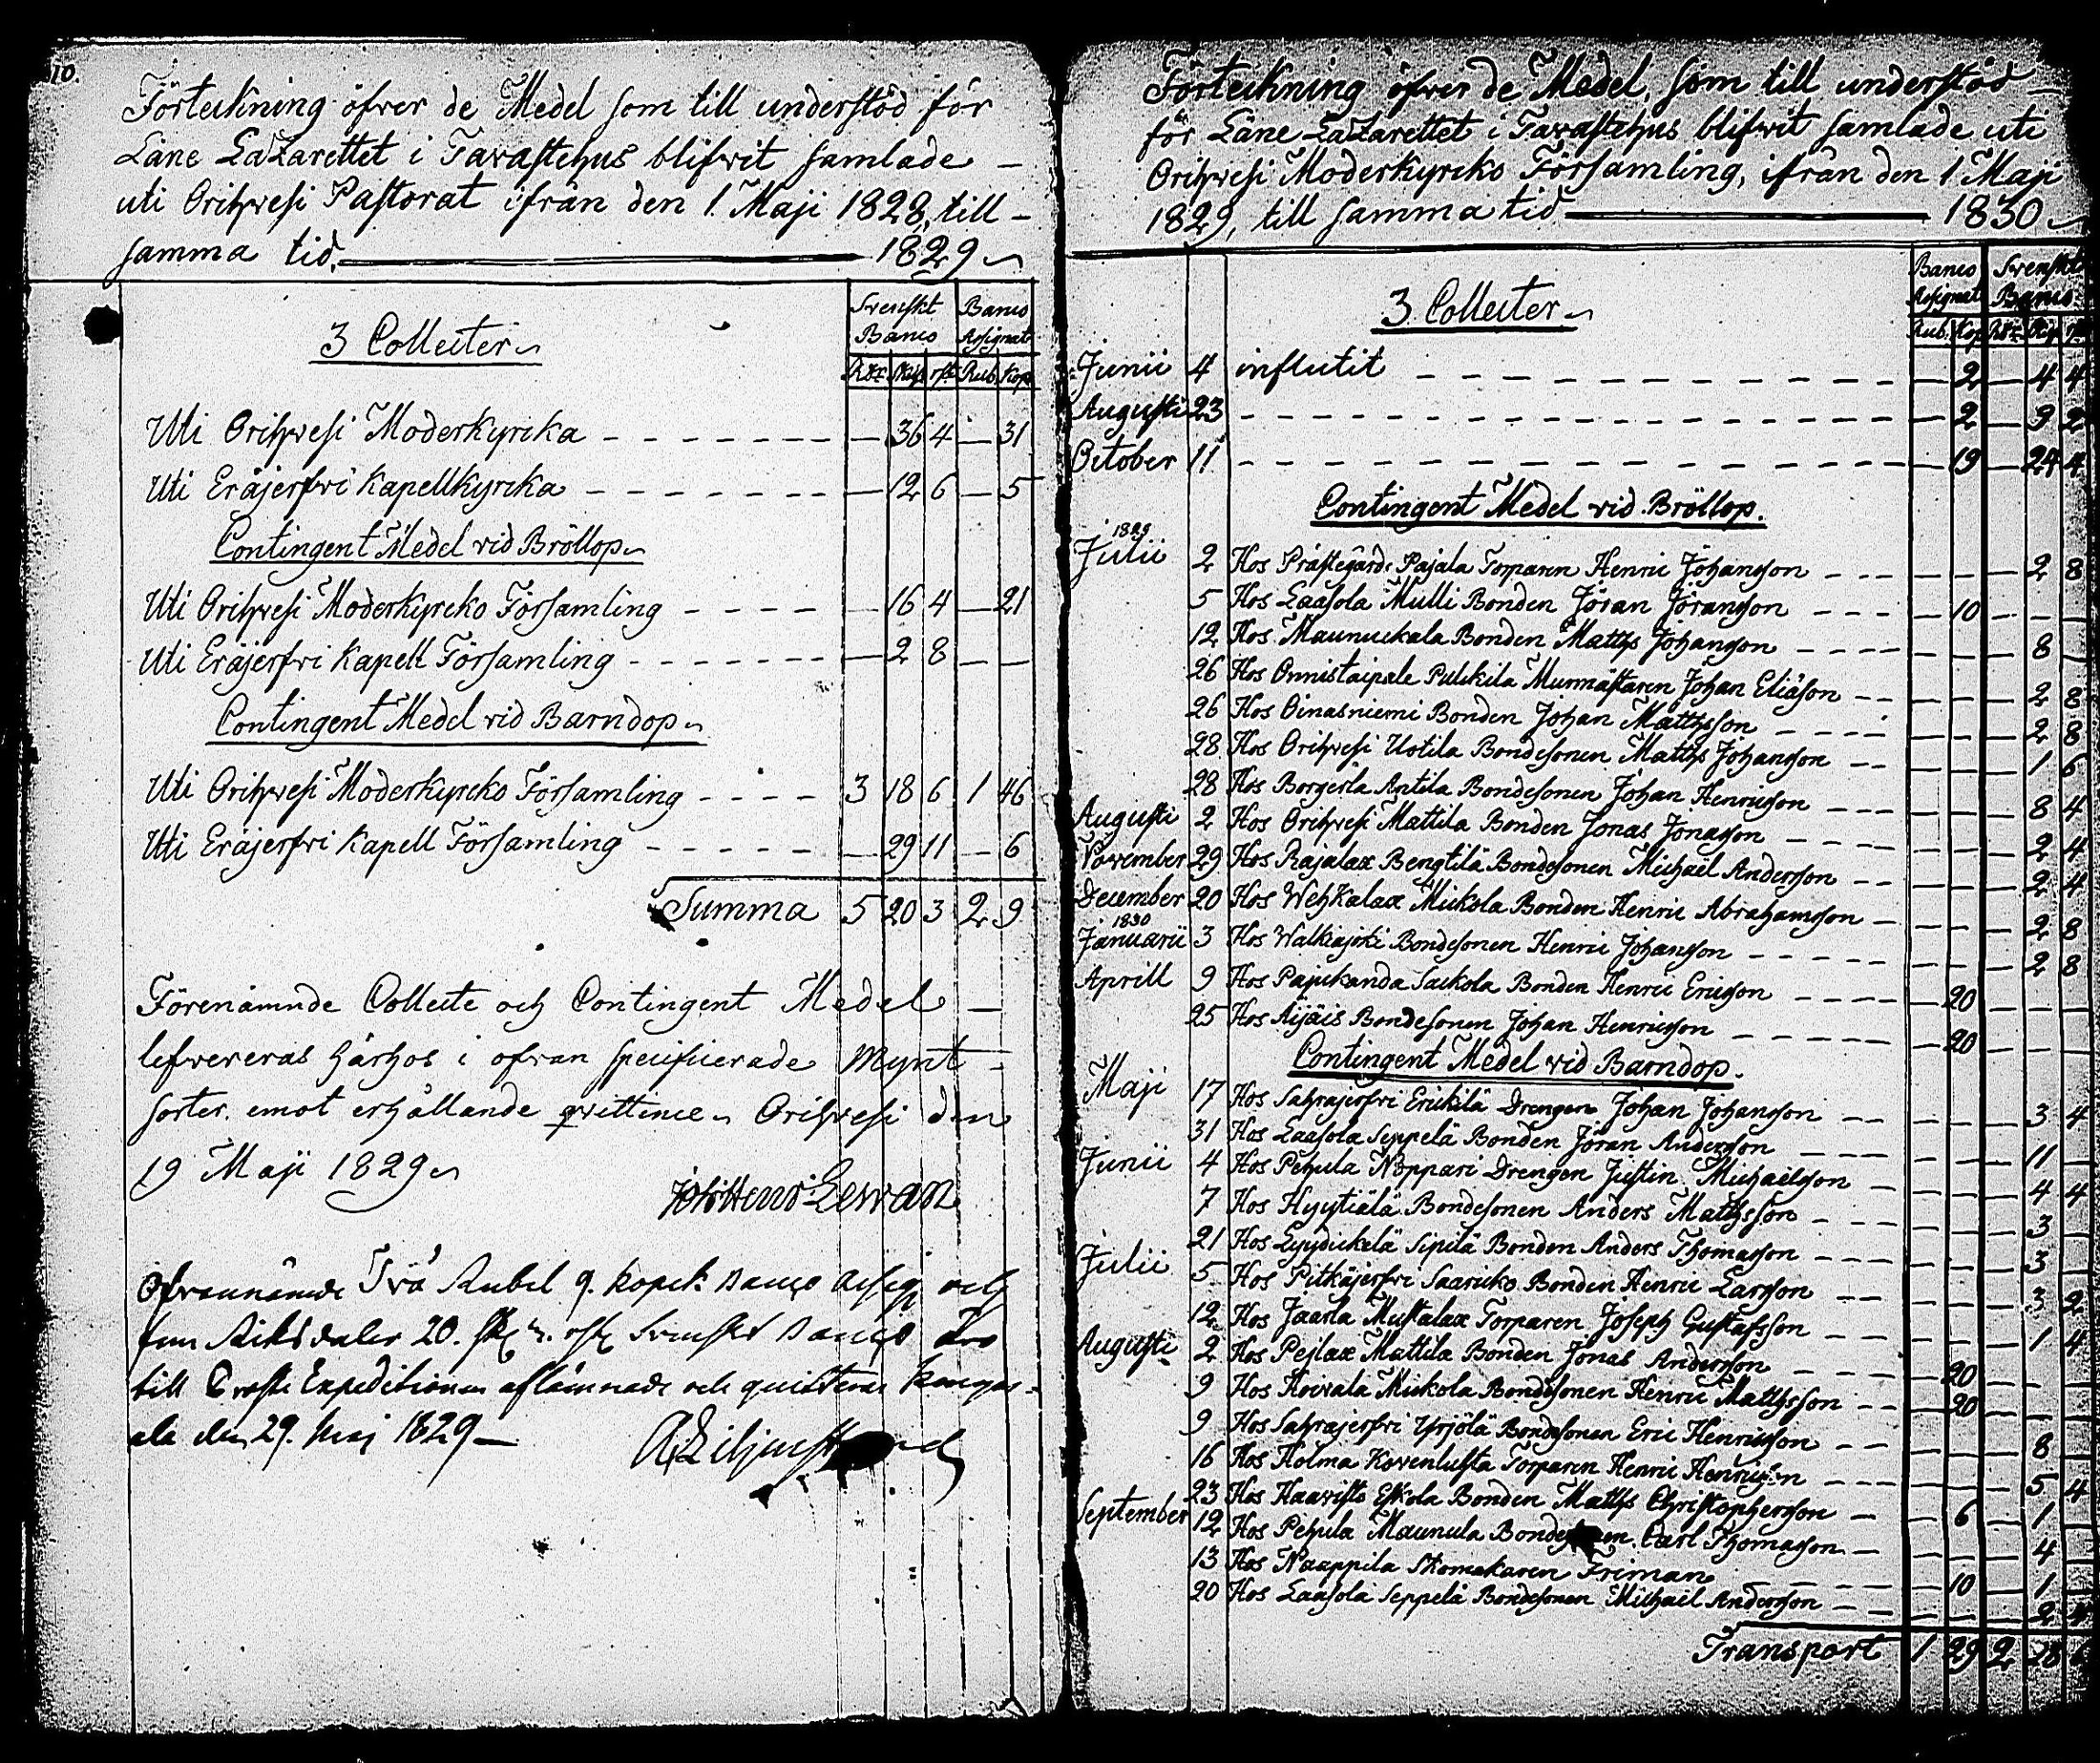 10.
Förteckning öfver de Medel som till understöd för
Läne Lazarettet i Tavastehus blifvit samlade –
uti Orihvesi Pastorat ifrån den 1. Maji 1828, till –
samma tid. 1829
Svenskt Banco
Banco Assignat
3 Collecter
Rdr Sk. rst. Rub. Kop.
Uti Orihvesi Moderkyrcka – 36 4 – 31
Uti Eräjerfvi Kapellkyrcka – 12 6 – 5
Contingent Medel vid Bröllop
Uti Orihvesi Moderkyrcko Församling – 16 4 – 21
Uti Eräjerfvi Kapell Församling – 2 8 – –
Contingent Medel vid Barndop
Uti Orihvesi Moderkyrcko Församling 3 18 6 1 46
Uti Eräjerfvi Kapell Församling – 29 11 – 6
Summa 5 20 3 2 9
Förenämnde Collecte och Contingent Medel –
lefvereras härhos i ofvan specificerade Mynt
sorter, emot erhållande qvittence. Orihvesi den
19 Maji 1829
Henr Levan
Ofvannämnde Två Rubel 9. kopek Banco Assig och
fem Riksdaler 20. sk 3. rst Svenskt Banco
till Prosts Expeditionen aflämnade och quitteras Kangas-
ala den 29. Maj 1829 –
A Liljestrand
Förteckning öfver de Medel, som till understöd –
för Läne Lazarettet i Tavastehus blifvit samlade uti
Orihvesi Moderkyrcko Församling, ifrån den 1 Maji
1829, till samma tid 1830
Banco Assignat
Svenskt Banco
3 Collecter
Rub. Kop Rdr Sk rst
Junii 4 influtit – 2 – 4 4
Augusti 23 – 2 – 9 2
October 11 – 19 – 24 4
Contingent Medel vid Bröllop.
1829
Julii 2 Hos Prästegårds Pajala Torparen Henric Johansson – – – 2 8
5 Hos Laasola Mulli Bonden Jöran Jöransson – 10 – – –
12 Hos Maunuckala Bonden Matths Johansson – – – 8 –
26 Hos Onnistaipale Pulckila Murmästaren Johan Eliäson – – – 2 8
26 Hos Oinasniemi Bonden Johan Matthsson – – – 2 8
28 Hos Orihvesi Uotila Bondesonen Matths Johansson – – – 1 6
28 Hos Borgerla Antila Bondesonen Johan Henricsson – – – 8 4
Augusti 2 Hos Orihvesi Mattila Bonden Jonas Jonasson – – – 2 4
November 29 Hos Rajalax Bengtilä Bondesonen Michaël Andersson – – – 2 4
December 20 Hos Wehkalax Mickola Bonden Henric Abrahamsson – – – 2 8
1830
Januarii 3 Hos Walkiajoki Bondesonen Henric Johansson – – – 2 8
Aprill 9 Hos Pajukanda Sackola Bonden Henric Ericsson – 20 – – –
25 Hos Äijäis Bondesonen Johan Henricsson – 20 – – –
Contingent Medel vid Barndop.
Maji 17 Hos Sahrajerfvi Erickilä Drengen Johan Johansson – – – 3 4
31 Hos Laasola Seppelä Bonden Jöran Andersson – – – 11 –
Junii 4 Hos Pehula Noppari Drengen Justin Michaelsson – – – 4 4
7 Hos Hyytiälä Bondesonen Anders Mattsson – – – 3 –
21 Hos Lyydickelä Sipilä Bonden Anders Thomasson – – – 3 –
Julii 5 Hos Pitkäjerfvi Saaricko Bonden Henric Larsson – – – 3 2
12 Hos Jaarla Mustalax Torparen Joseph Gustafsson – – – 1 4
Augusti 2 Hos Pejlax Mattila Bonden Jonas Andersson – 20 – – –
9 Hos Mickola Bondesonen Henric Matthsson – 20 – – –
9 Hos Sahrajerfvi Yrjölä Bondesonen Eric Henricsson – – – 8 –
16 Hos Holma Kovenlusta Torparen Henric Henricsson – – – 5 4
23 Hos Haavisto Eskola Bonden Matths Christophersson – 6 – 1 –
September 12 Hos Pehula Maunula Bondesonen Carl Thomasson – – – 4 –
13 Hos Naappila Skomakaren Friman – 10 – 1 –
20 Hos Laasola Seppelä Bondesonen Michaël Andersson – – – 2 4
Transport 1 29 2 28